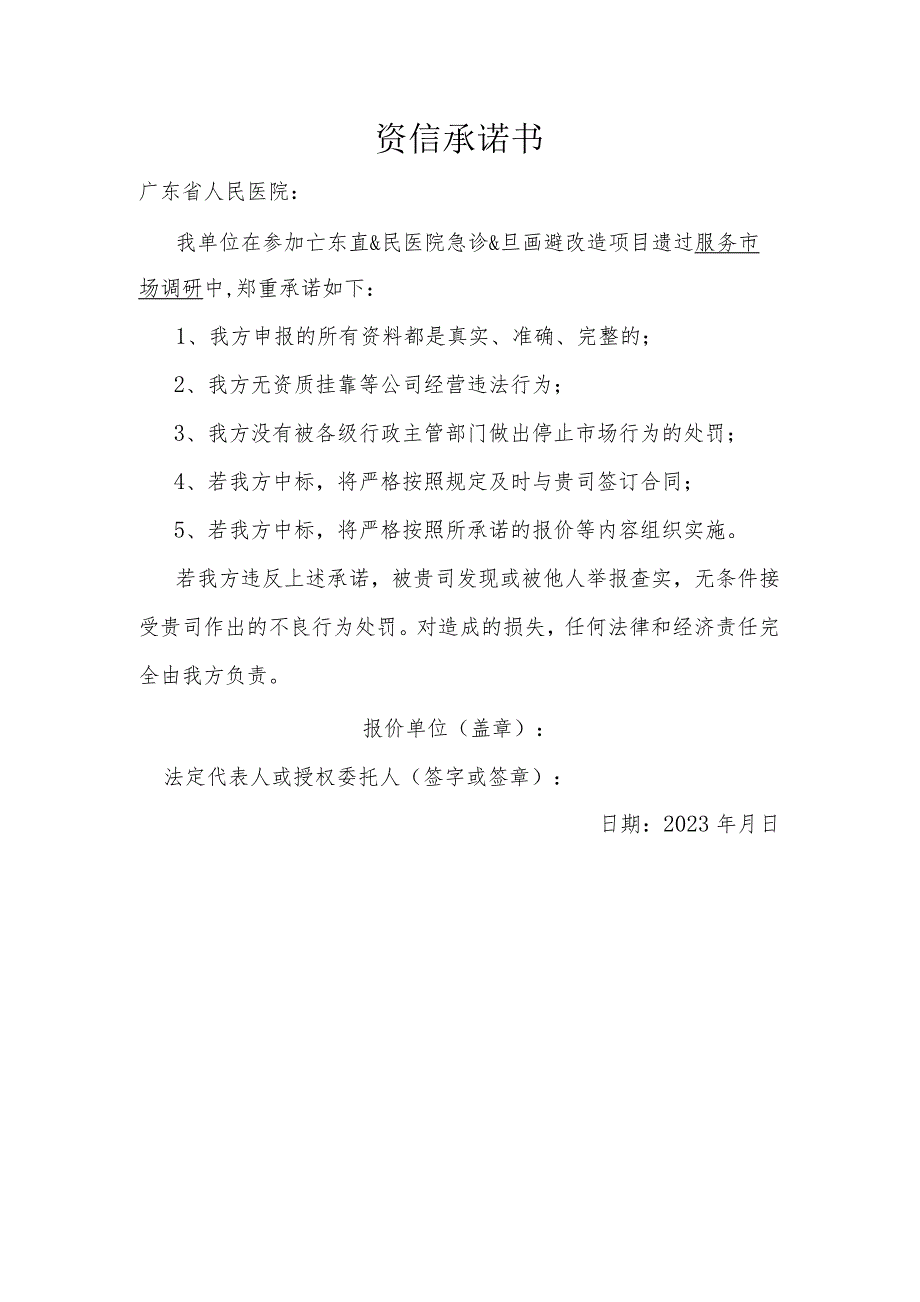 资信承诺书
广东省人民医院：
我单位在参加亡东直&民医院急诊&旦画避改造项目遗过服务市
场调研中,郑重承诺如下：
1、我方申报的所有资料都是真实、准确、完整的；
2、我方无资质挂靠等公司经营违法行为；
3、我方没有被各级行政主管部门做出停止市场行为的处罚；
4、若我方中标，将严格按照规定及时与贵司签订合同；
5、若我方中标，将严格按照所承诺的报价等内容组织实施。
若我方违反上述承诺，被贵司发现或被他人举报查实，无条件接
受贵司作出的不良行为处罚。对造成的损失，任何法律和经济责任完
全由我方负责。
报价单位（盖章）：
法定代表人或授权委托人（签字或签章）：
日期：2023 年月日